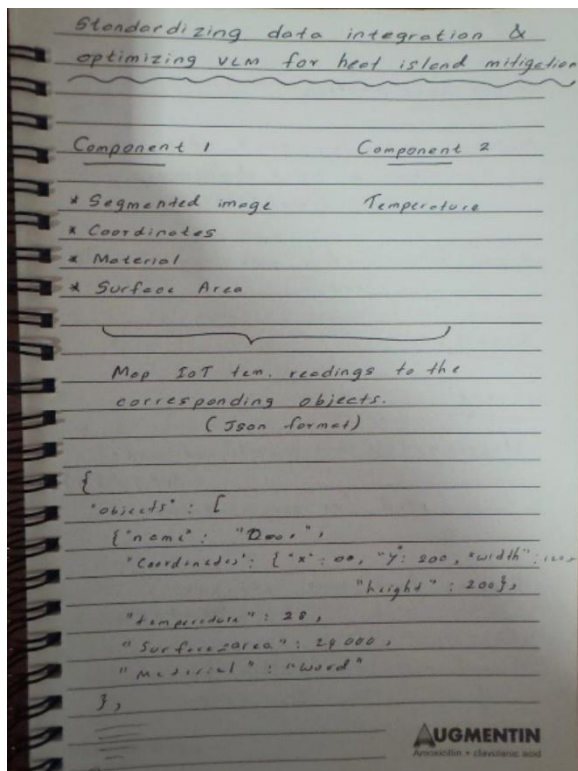 Standardizing data integration &
optimizing VLM for heat island mitigation
Component 1 Component 2
* Segmented image Temperature
* Coordinates
* Material
* Surface Area
Map IoT tem. readings to the
corresponding objects.
(Json format)
{
"objects" : [
{"name" : "Door",
"Coordinates" : { "x" : 00, "y" : 200, "width" :
"height" : 200},
"temperature" : 28,
"Surface-area" : 24000,
"Material" : "Wood"
},
AUGMENTIN
Amoxicillin + clavulanic acid